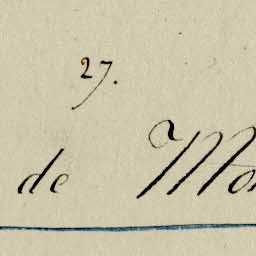 27.
de Mo